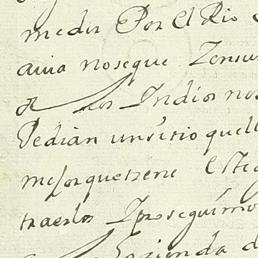 medir Por El Rio
avia noseque Zensu
los Indios no
Pedian unsitio quell
mejorquetiene Este
traerlos Iproseguimo
Hazienda d